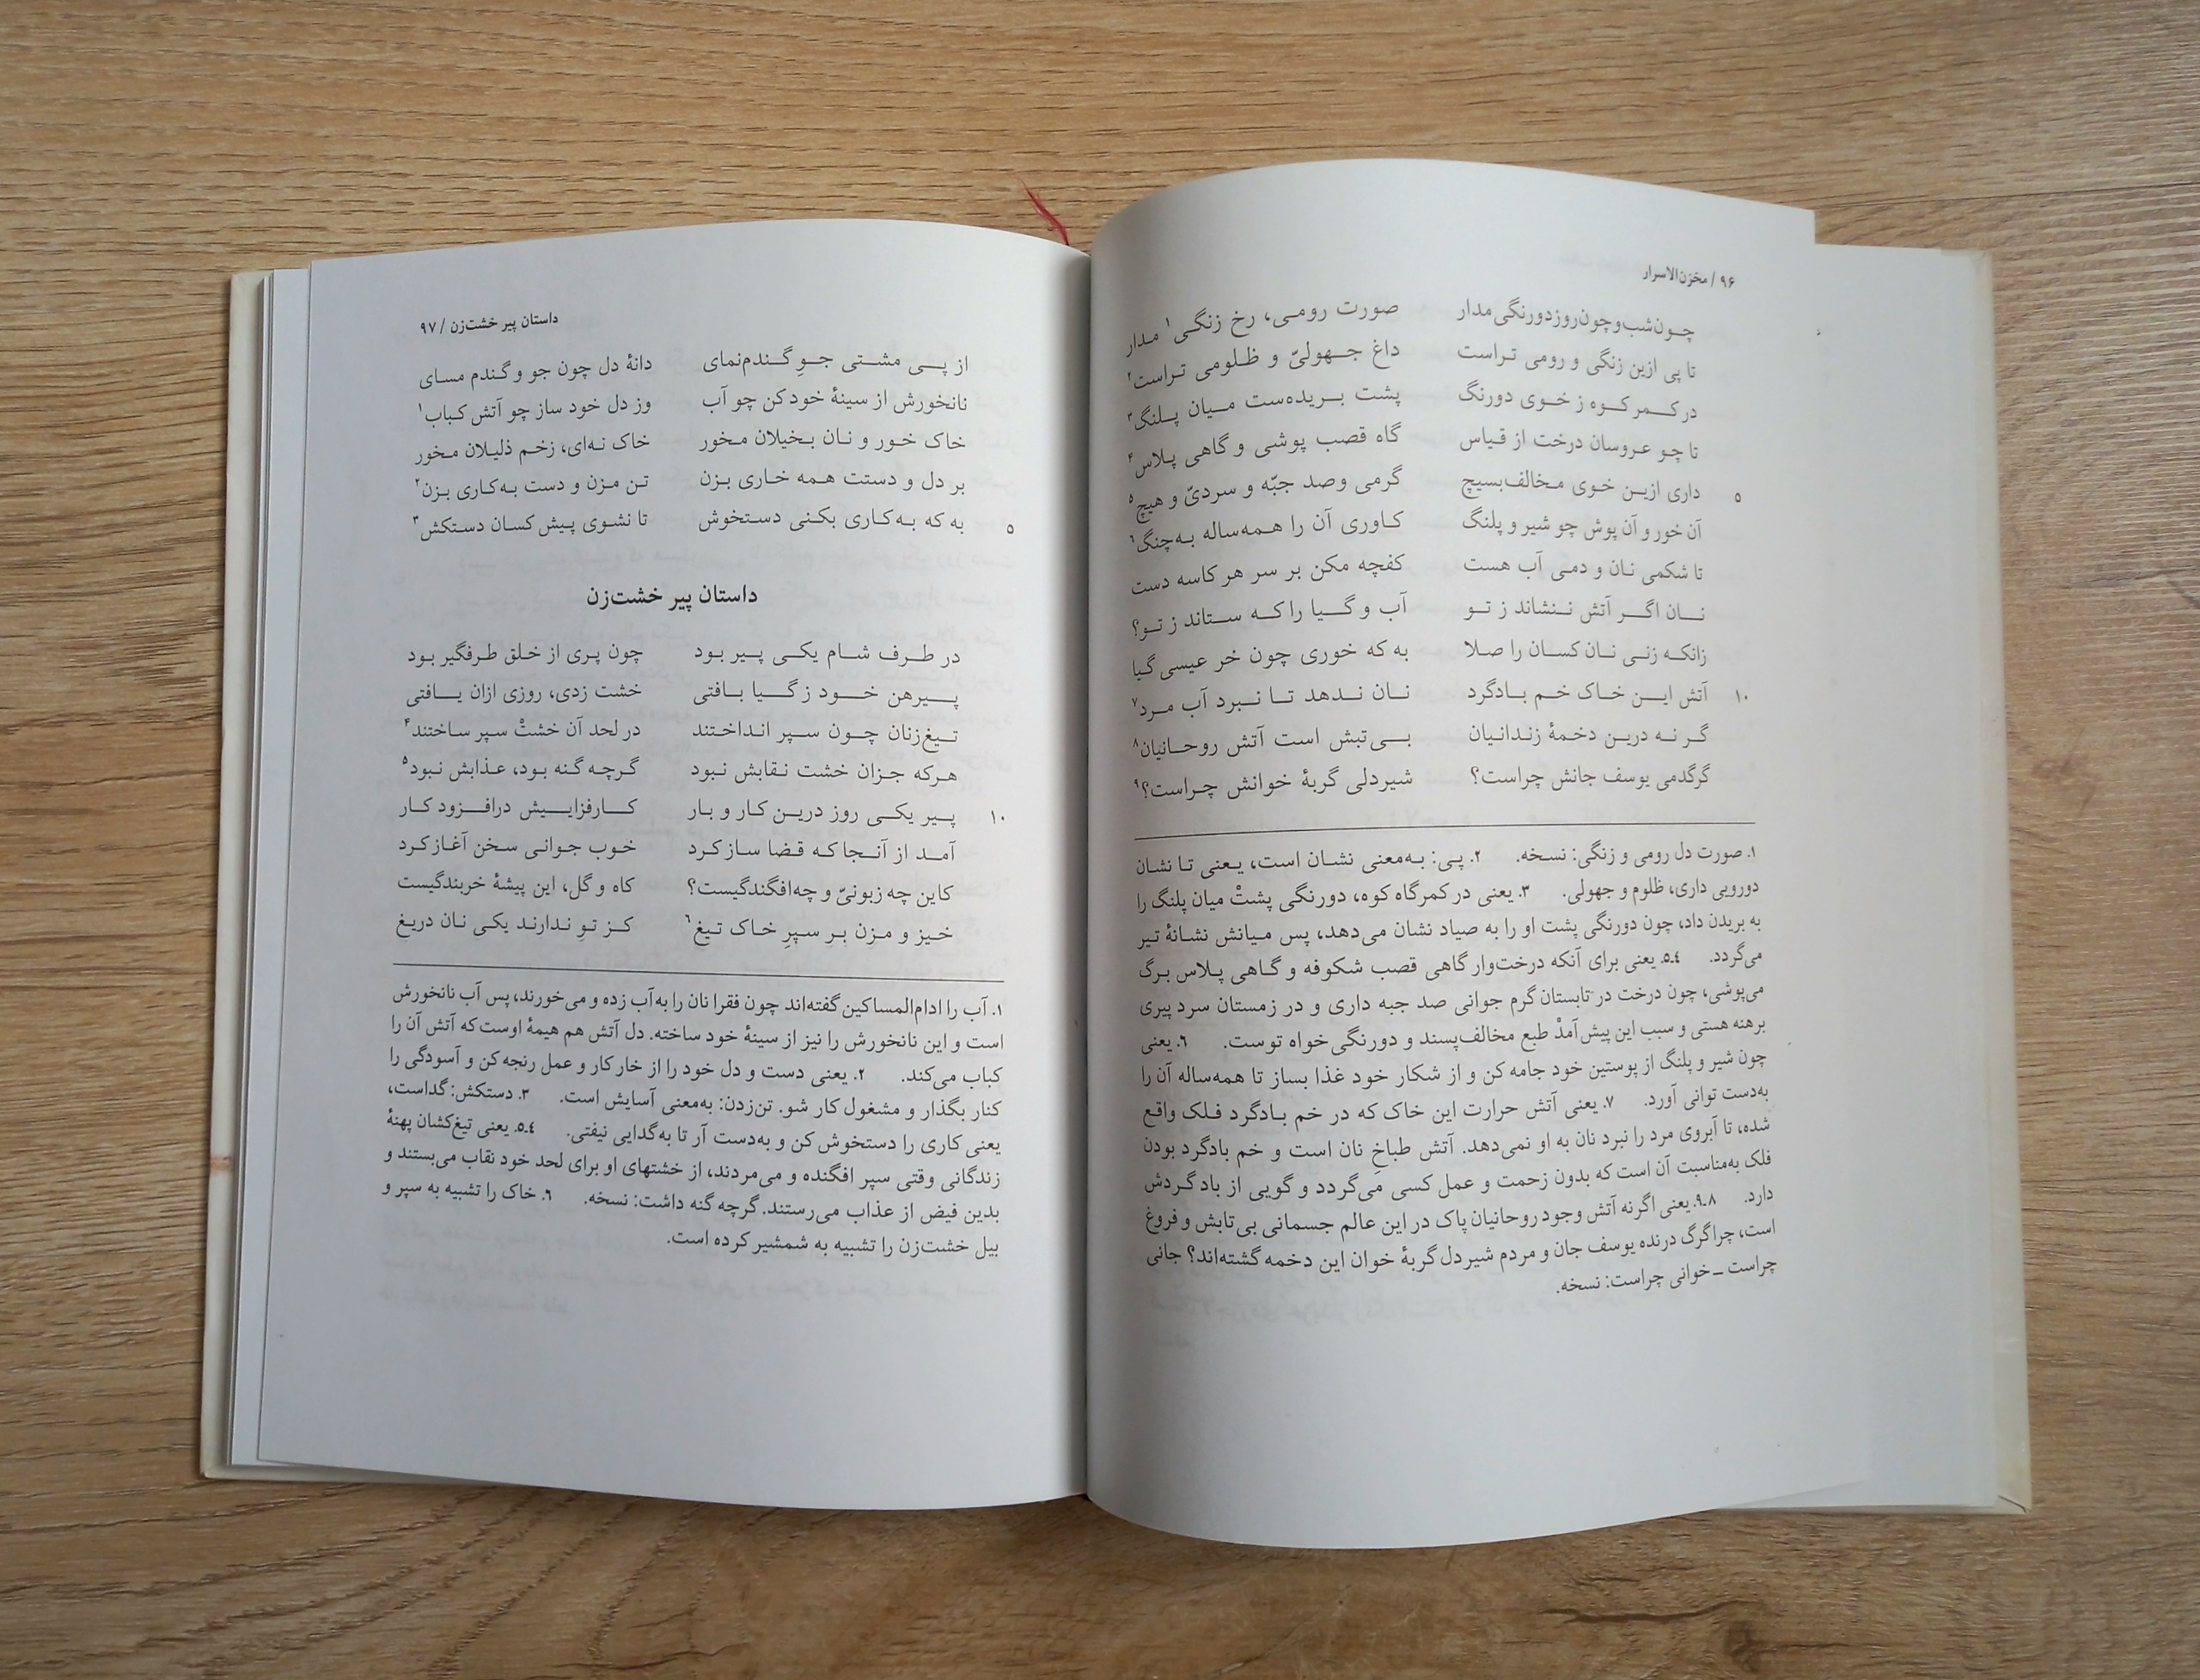 ۹۶ / مخزن‌الاسرار
چون‌شب‌وچون‌روز‌دورنگی‌مدار صورت رومی، رخ زنگی۱ مدار
تا پی ازین زنگی و رومی تراست داغ جهولیّ و ظلومی تراست۲
در کمر کوه ز خوی دورنگ پشت بریده‌ست میان پلنگ۳
تا چو عروسان درخت از قیاس گاه قصب پوشی و گاهی پلاس۴
۵ داری ازین خوی مخالف‌بسیچ گرمی وصد جبّه و سردیّ و هیچ۵
آن خور و آن پوش چو شیر و پلنگ کاوری آن را همه‌ساله به‌چنگ۶
تا شکمی نان و دمی آب هست کفچه مکن بر سر هر کاسه دست
نان اگر آتش ننشاند ز تو آب و گیا را که ستاند ز تو؟
زانکه زنی نان کسان را صلا به که خوری چون خر عیسی گیا
۱۰ آتش این خاک خم بادگرد نان ندهد تا نبرد آب مرد۷
گر نه درین دخمهٔ زندانیان بی‌تبش است آتش روحانیان۸
گرگدمی یوسف جانش چراست؟ شیردلی گربهٔ خوانش چراست؟۹
۱. صورت دل رومی و زنگی: نسخه. ۲. پی: به‌معنی نشان است، یعنی تا نشان
دورویی داری، ظلوم و جهولی. ۳. یعنی در کمرگاه کوه، دورنگی پشتْ میان پلنگ را
به بریدن داد، چون دورنگی پشت او را به صیاد نشان می‌دهد، پس میانش نشانهٔ تیر
می‌گردد. ۴ـ۵. یعنی برای آنکه درخت‌وار گاهی قصب شکوفه و گاهی پلاس برگ
می‌پوشی، چون درخت در تابستان گرم جوانی صد جبه داری و در زمستان سرد پیری
برهنه هستی و سبب این پیش‌آمدْ طبع مخالف‌پسند و دورنگی‌خواه توست. ۶. یعنی
چون شیر و پلنگ از پوستین خود جامه کن و از شکار خود غذا بساز تا همه‌ساله آن را
به‌دست توانی آورد. ۷. یعنی آتش حرارت این خاک که در خم بادگرد فلک واقع
شده، تا آبروی مرد را نبرد نان به او نمی‌دهد. آتش طباخِ نان است و خم بادگرد بودن
فلک به‌مناسبت آن است که بدون زحمت و عمل کسی می‌گردد و گویی از باد گردش
دارد. ۸ـ۹. یعنی اگرنه آتش وجود روحانیان پاک در این عالم جسمانی بی‌تابش و فروغ
است، چراگرگ درنده یوسف جان و مردم شیردل گربهٔ خوان این دخمه گشته‌اند؟ جانی
چراست ـ خوانی چراست: نسخه.
داستان پیر خشت‌زن / ۹۷
از پی مشتی جوِ گندم‌نمای دانهٔ دل چون جو و گندم مسای
نانخورش از سینهٔ خود کن چو آب وز دل خود ساز چو آتش کباب۱
خاک خور و نان بخیلان مخور خاک نه‌ای، زخم ذلیلان مخور
بر دل و دستت همه خاری بزن تن مزن و دست به‌کاری بزن۲
۵ به که به‌کاری بکنی دستخوش تا نشوی پیش کسان دستکش۳
داستان پیر خشت‌زن
در طرف شام یکی پیر بود چون پری از خلق طرفگیر بود
پیرهن خود ز گیا بافتی خشت زدی، روزی ازان یافتی
تیغ‌زنان چون سپر انداختند در لحد آن خشتْ سپر ساختند۴
هرکه جزان خشت نقابش نبود گرچه گنه بود، عذابش نبود۵
۱۰ پیر یکی روز درین کار و بار کارفزاییش درافزود کار
آمد از آنجا که قضا ساز کرد خوب جوانی سخن آغاز کرد
کاین چه زبونیّ و چه‌افگندگیست؟ کاه و گل، این پیشهٔ خربندگیست
خیز و مزن بر سپرِ خاک تیغ۶ کز تو ندارند یکی نان دریغ
۱. آب را ادام‌المساکین گفته‌اند چون فقرا نان را به‌آب زده و می‌خورند، پس آب نانخورش
است و این نانخورش را نیز از سینهٔ خود ساخته. دل آتش هم هیمهٔ اوست که آتش آن را
کباب می‌کند. ۲. یعنی دست و دل خود را از خار کار و عمل رنجه کن و آسودگی را
کنار بگذار و مشغول کار شو. تن‌زدن: به‌معنی آسایش است. ۳. دستکش: گداست،
یعنی کاری را دستخوش کن و به‌دست آر تا به‌گدایی نیفتی. ۴ـ۵. یعنی تیغ‌کشان پهنهٔ
زندگانی وقتی سپر افگنده و می‌مردند، از خشتهای او برای لحد خود نقاب می‌بستند و
بدین فیض از عذاب می‌رستند. گرچه گنه داشت: نسخه. ۶. خاک را تشبیه به سپر و
بیل خشت‌زن را تشبیه به شمشیر کرده است.